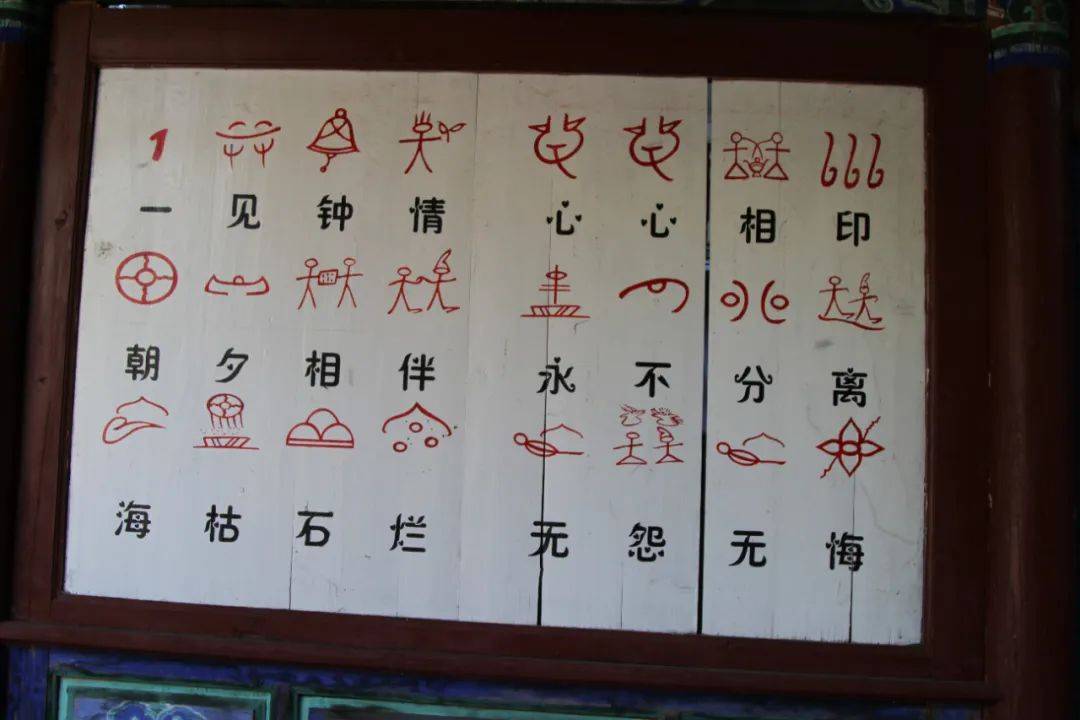 一见钟情 心心相印
朝夕相伴 永不分离
海枯石烂 无怨无悔